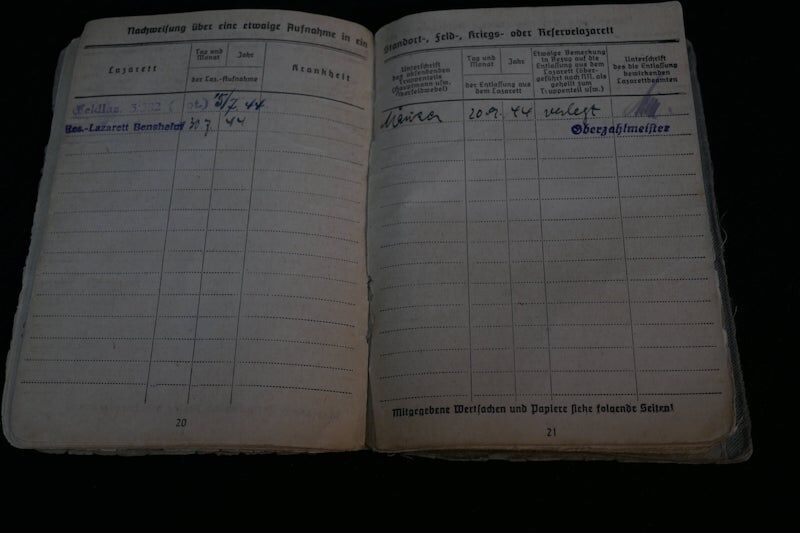 Nachweisung über eine etwaige Aufnahme in ein
Lazarett
Tag und Monat
Jahr
der Laz.-Aufnahme
Krankheit
Feldlaz.
7. 44
Res.-Lazarett Bensheim 30.7. 44
20
Standort-, Feld-, Kriegs- oder Reservelazarett
Unterschrift
des absendenden
Truppenteils
(Hauptmann usw.
Hauptfeldwebel)
Tag und
Monat
Jahr
der Entlassung aus
dem Lazarett
Etwaige Bemerkung
in Bezug auf die
Entlassung aus dem
Lazarett (über-
geführt nach N.N. als
geheilt zum
Truppenteil usw.)
Unterschrift
des die Entlassung
bewirkenden
Lazarettbeamten
20.9. 44 verlegt
Oberzahlmeister
Mitgegebene Wertsachen und Papiere siehe folgende Seiten!
21